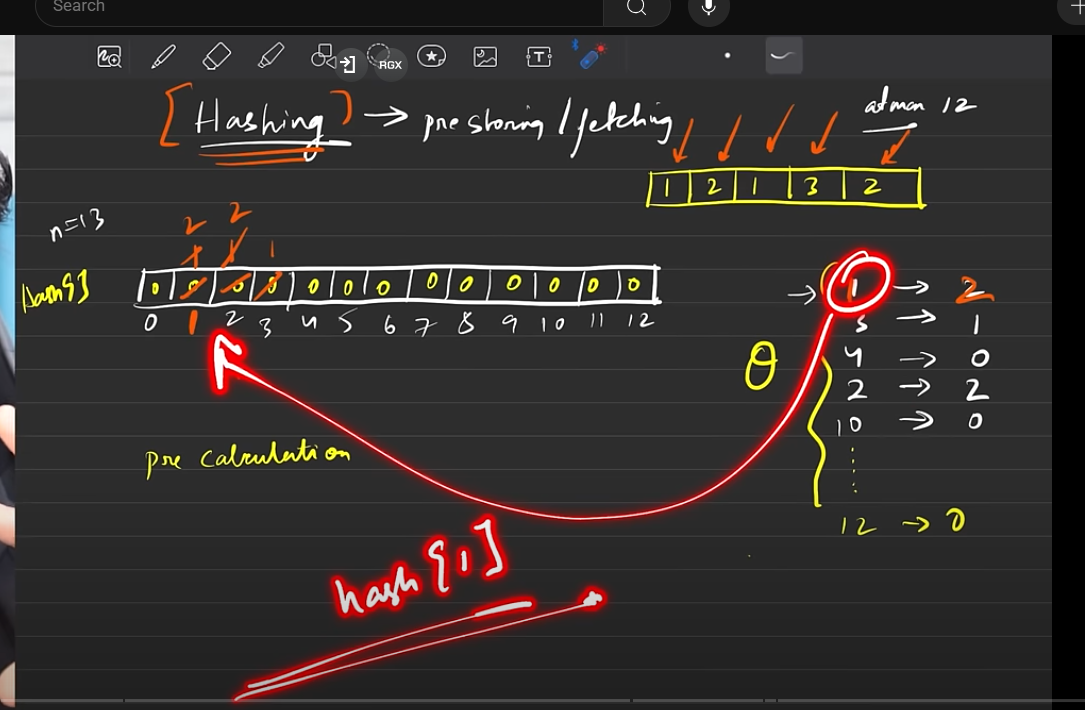 Search
RGX
T
[Hashing] → pre storing / fetching
atmax 12
1 2 1 3 2
n=13
2 2
1 1 1
hash[]
0 0 0 0 0 0 0 0 0 0 0 0 0
0 1 2 3 4 5 6 7 8 9 10 11 12
→ 1 → 2
→ 1
4 → 0
2 → 2
10 → 0
12 → 0
θ
pre calculation
hash[1]